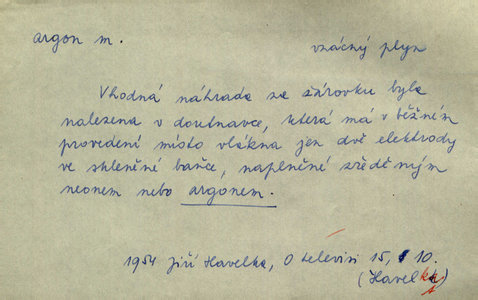 argon m.
vzácný plyn
Vhodná náhrada za žárovku byla
nalezena v doutnavce, která má v běžném
provedení místo vlákna jen dvě elektrody
ve skleněné baňce, naplněné zředěným
neonem nebo argonem.
1954 Jiří Havelka, O televisi 15, 10.
(Havelka)